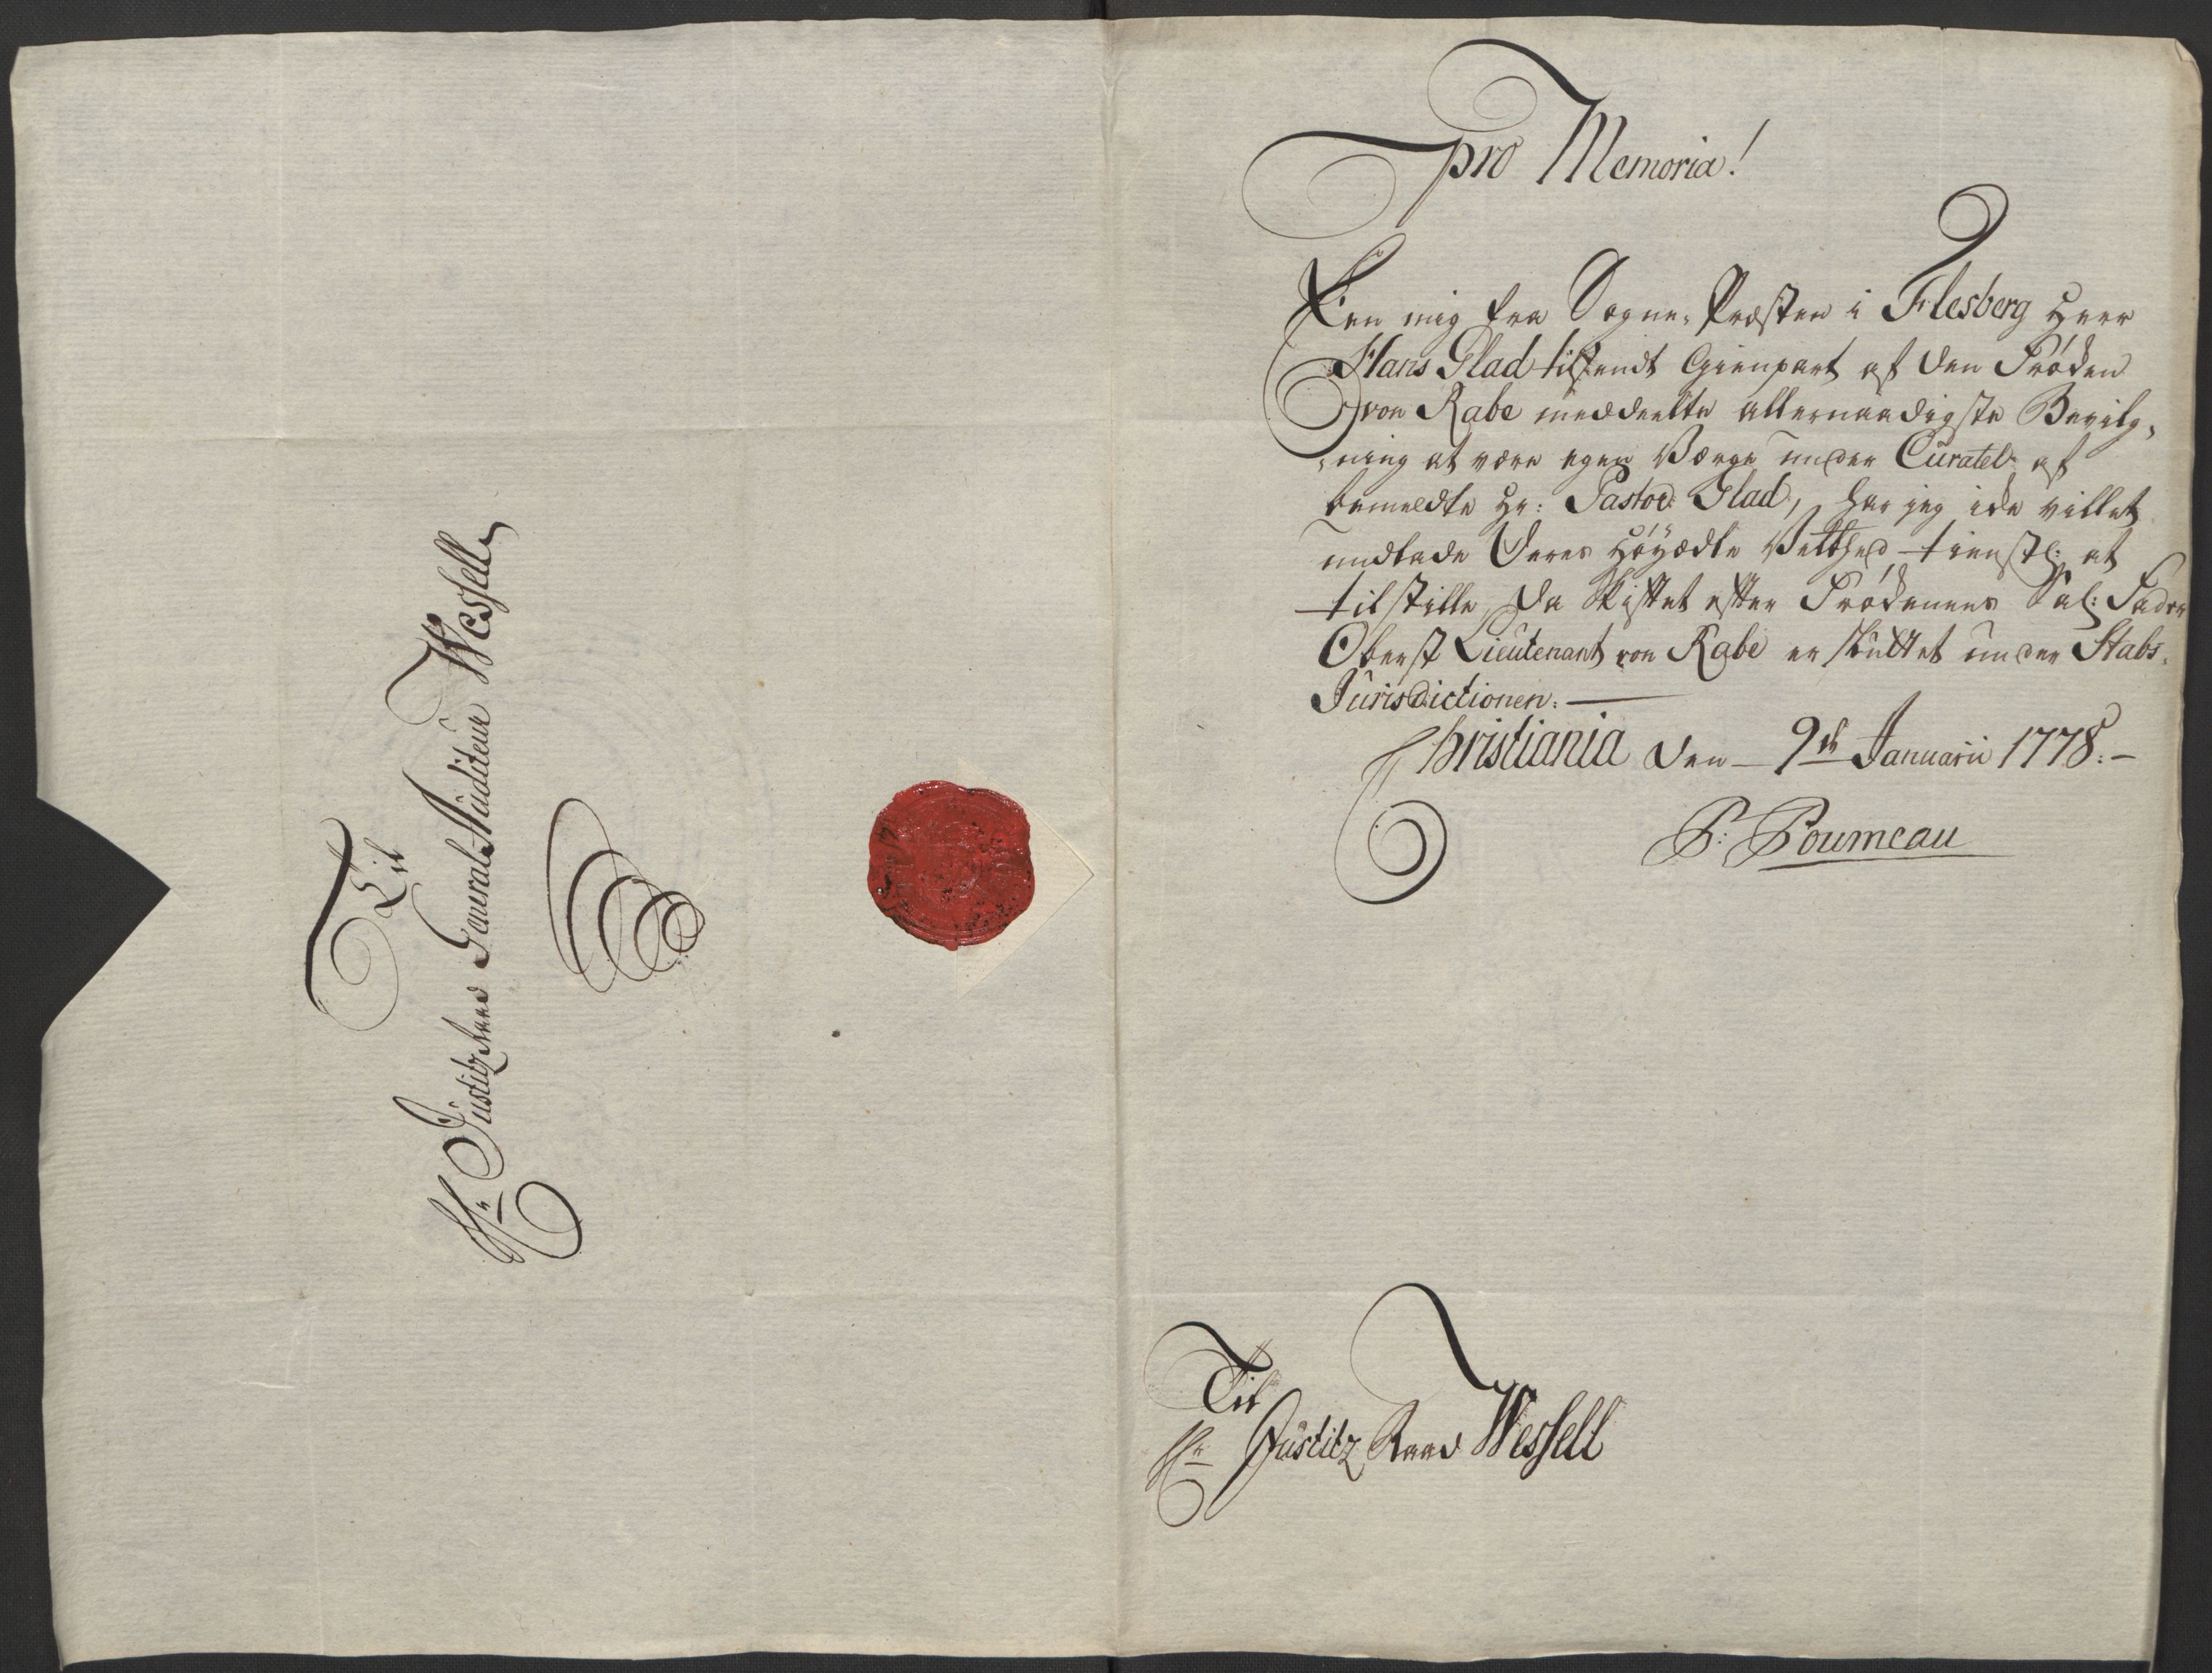 Til
Hr Justitzraad General Auditeur Wessell
pro Memoria!
Een mig fra Sogne-Præsten i Flesberg Herr
Hans Glad tilsendt Gienpart af den Frøken
von Rabe meddeelte allernaadigste Bevilg-
-ning at være egen Værge under Curatel af
bemeldte Hr: Pastor Glad, har jeg icke villet
undlade Deres Høyædle Velbhed tienstl: at
tilstille, da Skiftet efter Frøkenens Sal: Fader
Oberst Lieutenant von Rabe er sluttet under Stabs-
Jurisdictionen. —
Christiania den 9de Januarii 1778. —
P: Poumeau
Til
Hr Justitz Raad Wessell